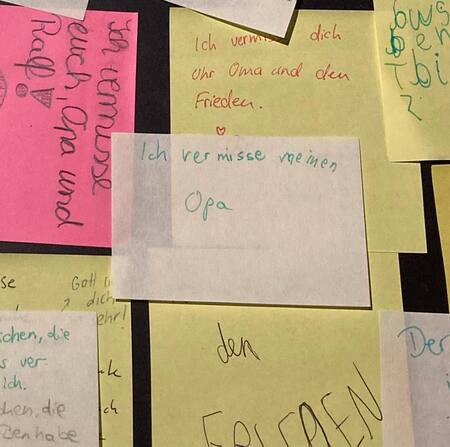 Ich vermisse
euch, Opa und
Ralf!
Ich dich
Uhr Oma und den
Frieden.
ows
en
bi
Ich vermisse meinen
Opa
se
Gott
dich
ehr!
chen, die
s ver-
ich.
chen, die
en habe
ch
den
FRIEDEN
Der